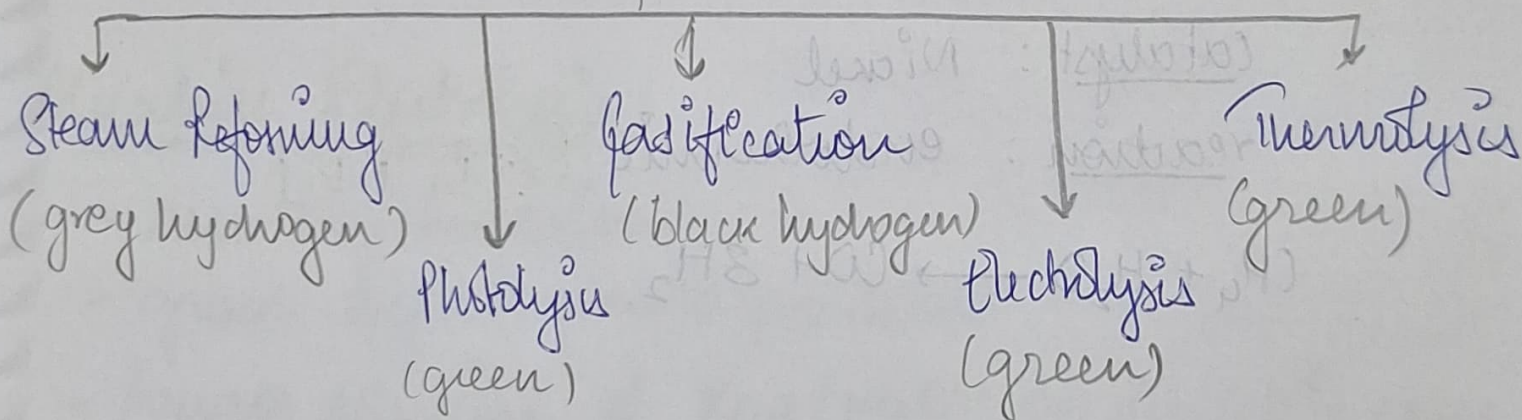 Steam Reforming
(grey hydrogen)
Photolysis
(green)
Gasification
(black hydrogen)
Electrolysis
(green)
Thermolysis
(green)